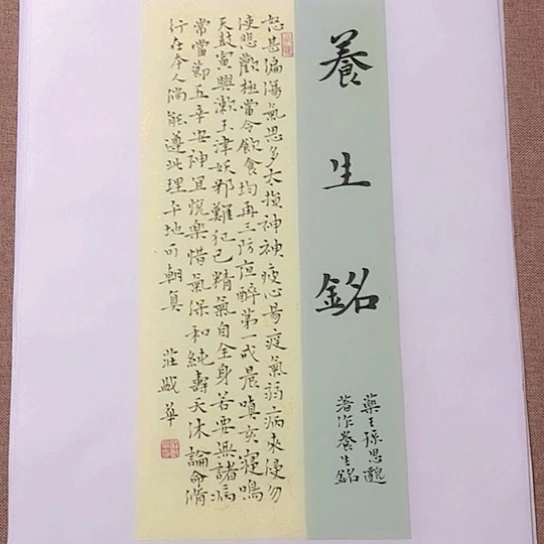 養生銘
藥王孫思邈
著作養生銘
怒甚偏傷氣思多太損神神疲心易疫氣弱病來侵勿
使悲歡極當令飲食均再三防夜醉第一戒晨嗔亥寢鳴
天鼓寅興漱玉津妖邪難犯己精氣自全身若要無諸病
常當節五辛安神宜悅樂惜氣保和純壽夭休論命脩
行在本人倘能遵此理平地可朝真 莊